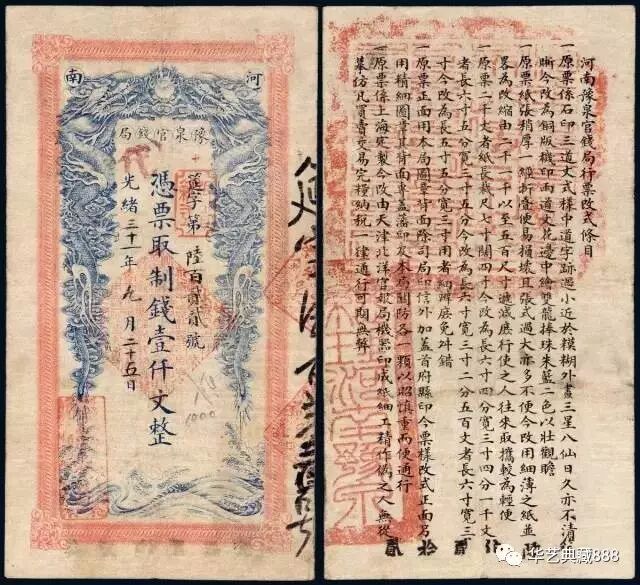 河南
豫泉官錢局
字第陸百貳號
憑票取制錢壹仟文整
光緒三十一年九月二十五日
1000
河南豫泉官錢局行票改式條目
一原票係石印三道文式樣中道字跡過小近於模糊外畫三星八仙日久亦不清
晰今改為銅版機印兩道文花邊中繪雙龍捧珠朱藍二色以壯觀瞻
一原票紙張稍厚一經折疊便易損壞且張式過大亦多不便今改用細薄之紙並
畧為改縮由二千一千以至五百尺寸遞減庶行使之人往來取攜較為輕便
一原票二千文者紙長裁尺七寸闊四寸今改為長六寸四分寬三寸四分一千文
者長六寸五分寬三寸五分今改為長六寸寬三寸二分五百文者長六寸寬三
寸今改為長五寸五分寬三寸用者細辨庶免舛錯
一原票正面用本局圖章背面除司局印信外加蓋首府縣印今票樣改式正面另
用精細圖章其背面專蓋藩印及本局關防各一顆以昭慎重而便通行
一原票係上海定製今改由天津北洋官報局機器印成紙細工精作偽之人無從
摹仿凡買賣交易完糧納稅一律通行可期無弊
华艺典藏888